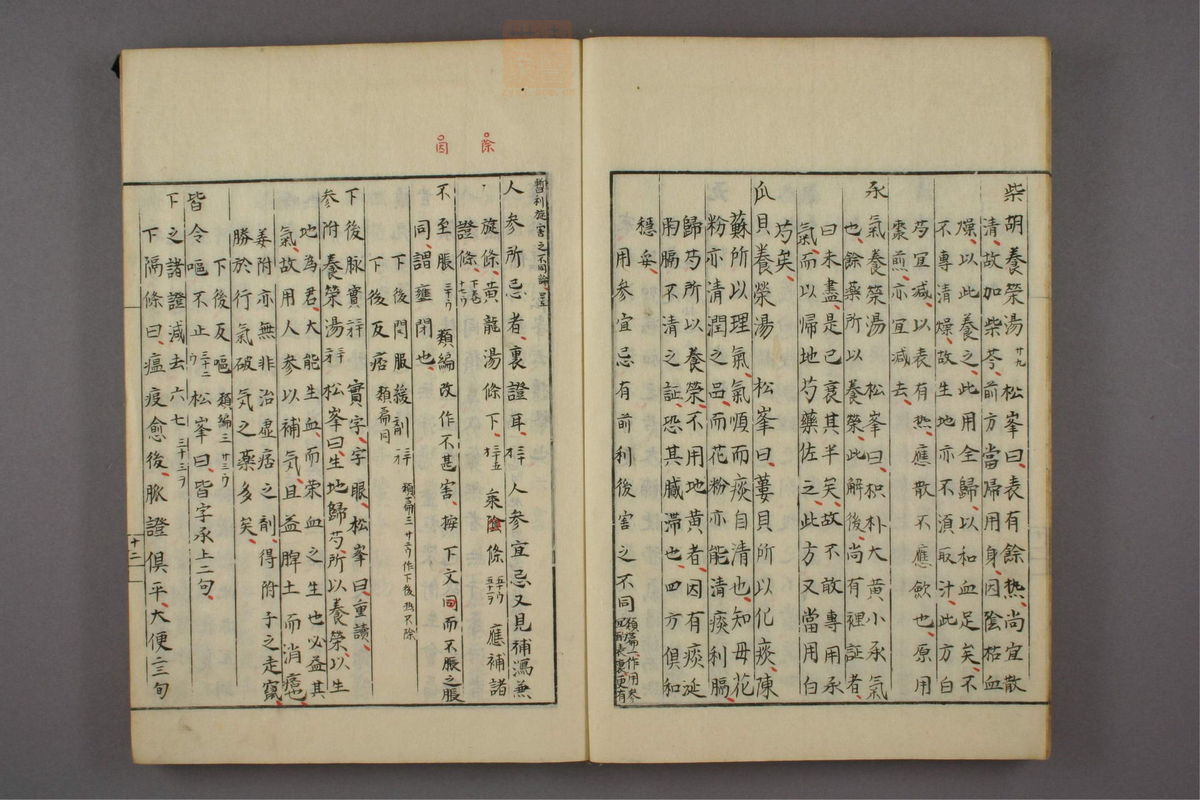 柴胡養榮湯 廿九 松峯曰、表有餘熱、尚宜散
清、故加柴芩、前方當歸用身、因陰枯血
燥、以此養之、此用全歸、以和血足矣、不
不專清燥、故生地亦不湏取汁、此方白
芍宜减、以表有热、應散不應歛也、原用
棗煎、亦宜减去、
承氣養榮湯 松峯曰、枳朴大黄小承氣
也、餘藥所以養榮、此解後、尚有裡証者、
曰未盡、是已衰其半矣、故不敢專用承
氣、而以歸地芍藥佐之、此方又當用白
芍矣、
瓜貝養榮湯 松峯曰、蔞貝所以化痰、陳
蘇所以理氣、氣順而痰自清也、知母花
粉亦清潤之品、而花粉亦能清痰利膈、
歸芍所以養榮、不用地黄者、因有痰涎
胸膈不清之証、恐其膩滞也、四方俱和
穩妥、
用參宜忌有前利後害之不同
暫利旋害之不同論
人參所忌者、裏證耳、 人參宜忌又見補瀉兼
旋條、黄龍湯條下、 乘陰條 應補諸
證條、
不至脹 類編改作不甚害、按下文同而不脹之脹
同、謂壅閉也、
下後悶服緩剤
下後反痞 類編同 類編三作下後热不除
下後脉實 實字、字眼、松峯曰、重讀、
參附養榮湯 松峯曰、生地歸芍所以養榮、以生
地為君、大能生血、而榮血之生也必益其
氣、故用人參以補气、且益脾土而消痞也、
姜附亦無非治虚痞之剤、得附子之走竄、
勝於行氣破気之藥多矣、
下後反嘔 類編三
皆令嘔不止 松峯曰皆字承上二句
下之諸證减去六七
下隔條曰、瘟疫愈後、脈證俱平、大便二三旬
除
因
十二